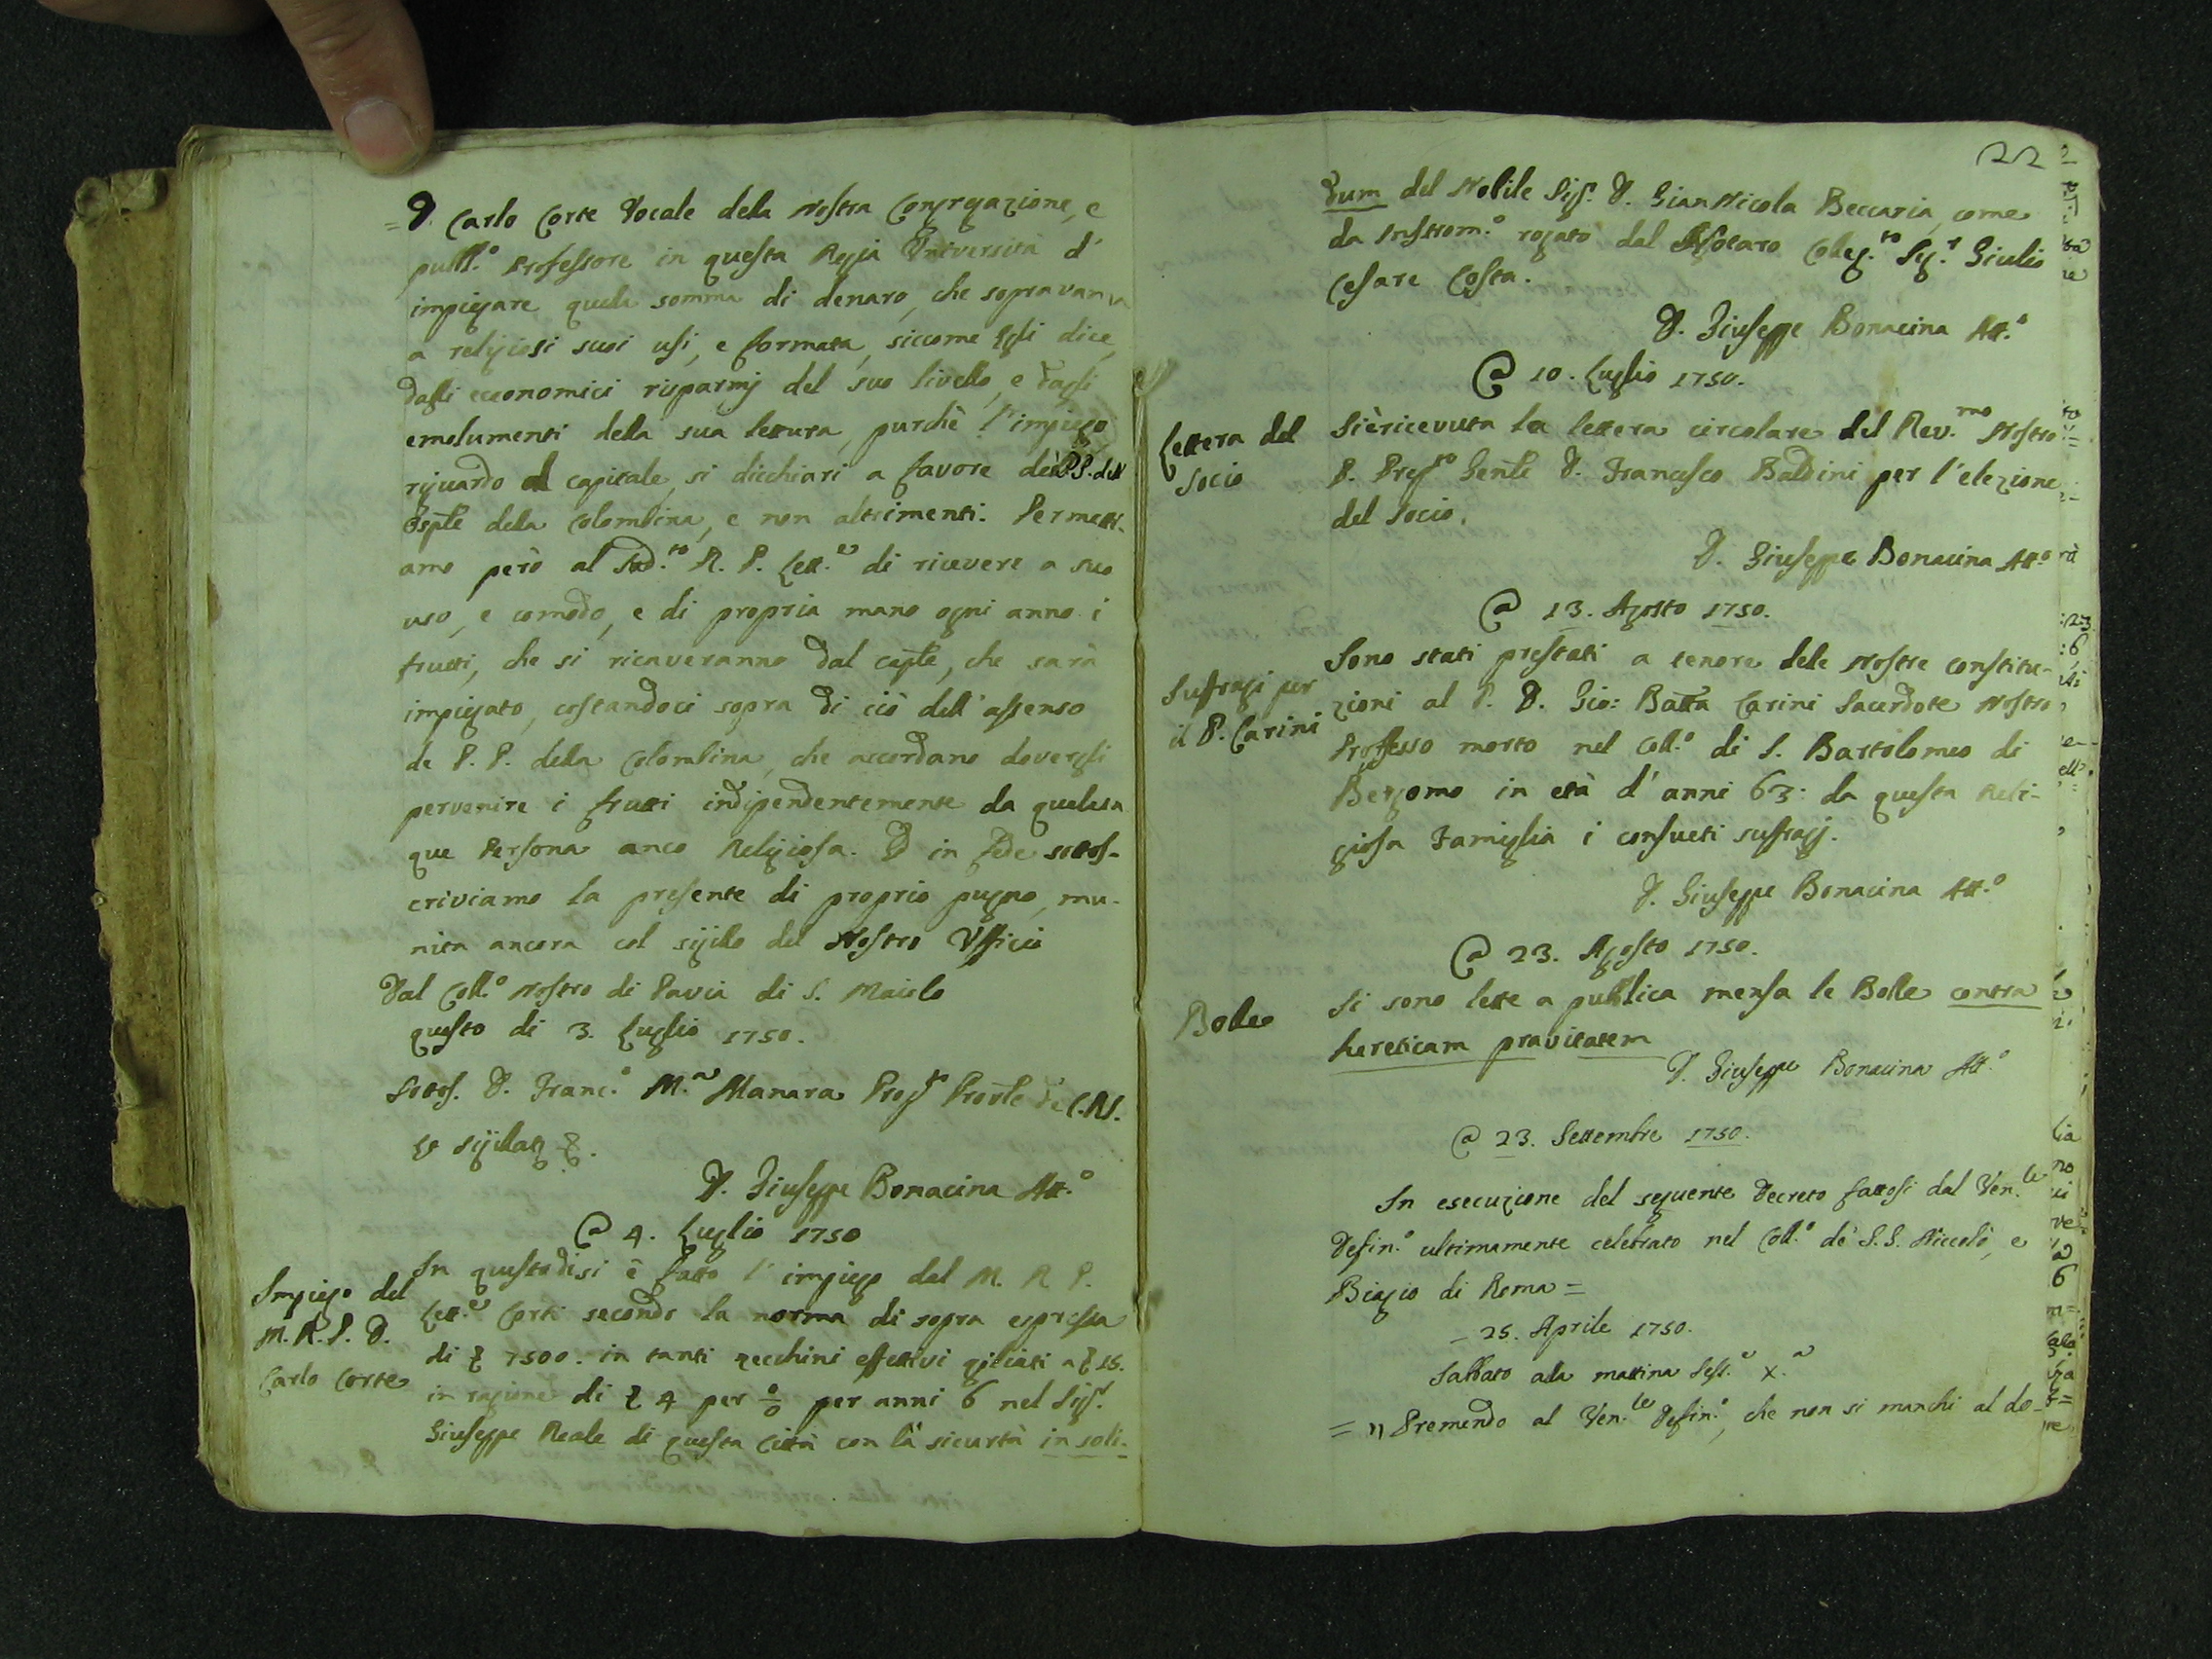 = D. Carlo Corte Vocale dela Nostra Congregazione, e
publl.º Professore in questa Regia Università d'
impiegare quela somma di denaro, che sopravanza
a religiosi suoi usi, e formata, siccome Egli dice,
dagli economici risparmj del suo livello, e dagli
emolumenti dela sua lettura, purchè l'impiego
riguardo al capitale, si dicchiari a favore dei P.P. dell
Osple dela Colombina, e non altrimenti. Permetti-
amo però al Sud.to R. P. Lett.e di ricevere a suo
uso, e comodo, e di propria mano ogni anno i
frutti, che si ricaveranno dal caple, che sarà
impiegato, costandoci sopra di ciò dell'assenso
de P. P. della Colombina, che accordano dovergli
pervenire i frutti indipendentemente da qualun
que Persona anco Religiosa. E in fede sottos-
criviamo la presente di proprio pugno, mu-
nita ancora col sigilo del Nostro Ufficio
Dal Coll.º Nostro di Pavia di S. Maiolo
questo di 3. Luglio 1750.
Sottos. D. Franc.º M.a Manara Prep.to Provle de C.R.S.
D. Giuseppe Bonacina Att.º
@ 4. Luglio 1750
Impiego del
M. R. P. D.
Carlo Corte
In questo di si è fatto l'impiego del M. R. P.
Lett.e Corti secondo la norma di sopra espressa
di £ 7500. in tanti zecchini effettivi gigliati a £ 15.
in ragione di £ 4 per % per anni 6 nel Sigr.
Giuseppe Reale di questa Città con la sicurtà in soli-
22
dum del Nobile Sigr. D. Gian Nicola Beccaria, come
da Instrom.º rogato dal Notaro Coleg.to Sig.r Giulio
Cesare Costa.
D. Giuseppe Bonacina Att.º
@ 10. Luglio 1750.
Lettera del
Socio
Si è ricevuta la lettera circolare del Rev.mo Nostro
P. Prep.to Genle D. Francesco Baldini per l'elezione
del Socio.
D. Giuseppe Bonacina Att.º
@ 13. Agosto 1750.
Suffragi per
il P. Carini
Sono stati prestati a tenore dele Nostre constitu-
zioni al P. D. Gio: Batta Carini Sacerdote Nostro
Professo morto nel Coll.º di S. Bartolomeo di
Bergomo in età d'anni 63: da questa Reli-
giosa Famiglia i consueti suffragj.
D. Giuseppe Bonacina Att.º
@ 23. Agosto 1750.
Bolle
Si sono lette a publica mensa le Bolle contra
hereticam pravitatem
D. Giuseppe Bonacina Att.º
@ 23. Settembre 1750.
In esecuzione del seguente Decreto fattosi dal Ven.le
Defin.º ultimamente celebrato nel Coll.º de S.S. Niccolò, e
Biagio di Roma =
– 25. Aprile 1750.
Sabbato ala mattina Sess.e X.a
= „ Premendo al Ven.le Defin.º, che non si manchi al do-